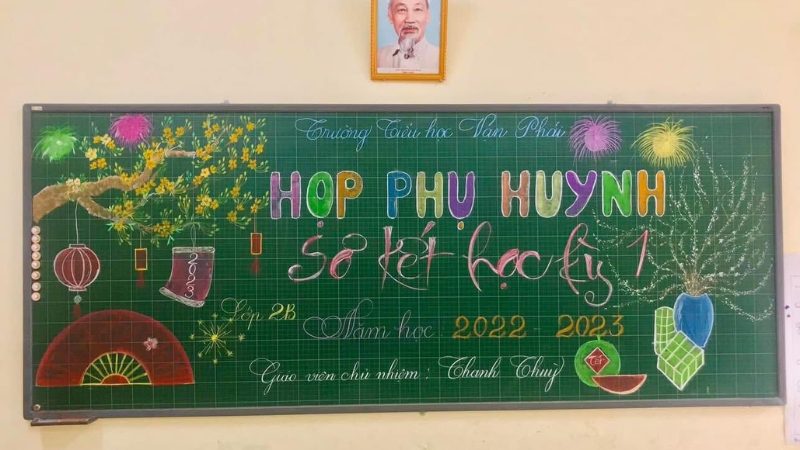 Trường Tiểu học Vạn Phái
HỌP PHỤ HUYNH
Sơ kết học kỳ 1
2023
Lớp 2B
Năm học 2022 - 2023
Giáo viên chủ nhiệm: Thanh Thuỷ
TẾT